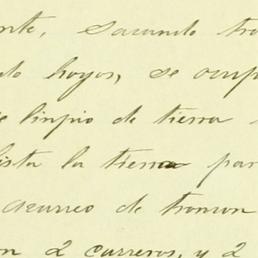 nte, sacando tro
do hoyos, se ocup
e limpio de tierra
lista la tierra par
acarreo de troncon
n 2 carreros, y 2